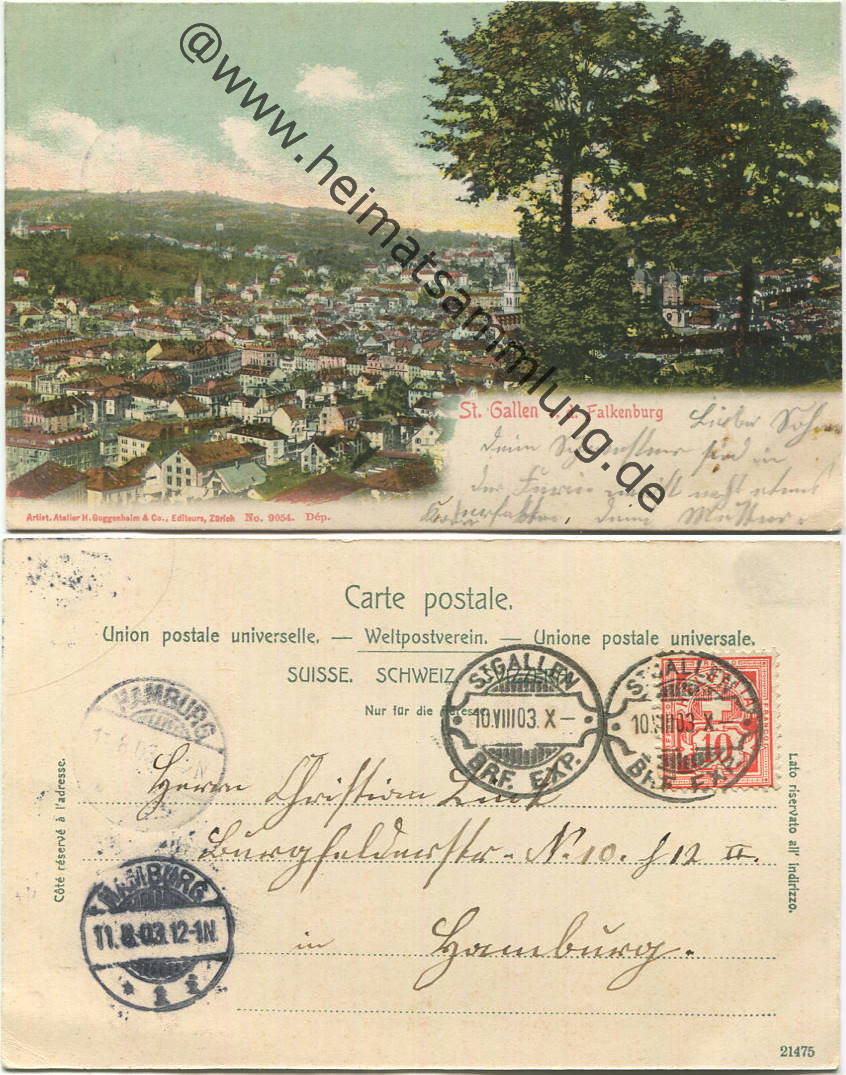 @www.heimatsammlung.de
St. Gallen v. d. Falkenburg
Lieber Sohn
Deine Schwestern sind in
der Ferien
Deine Mutter.
Artist. Atelier H. Guggenheim & Co., Editeurs, Zürich No. 9054. Dép.
Carte postale.
Union postale universelle. — Weltpostverein. — Unione postale universale.
SUISSE. SCHWEIZ. SVIZZERA.
Nur für die Adresse.
Côté réservé à l'adresse.
Lato riservato all' indirizzo.
ST. GALLEN
10.VIII 03. X–
BRF. EXP.
ST. GALLEN
10.VIII 03. X–
BRF. EXP.
10
HAMBURG
11.8.03
HAMBURG
11.8.03.12-1N
* 1 i
Herrn Christian
Burgfelderstr. No. 10. II.
in Hamburg.
21475